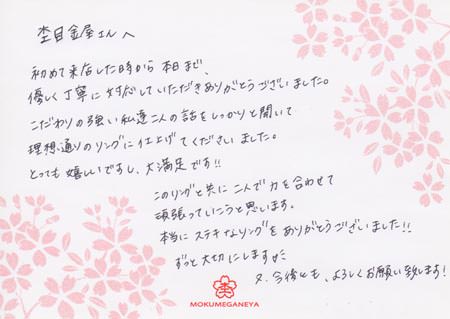 杢目金屋さんへ
初めて来店した時から本日まで、
優しく丁寧に対応していただきありがとうございました。
こだわりの強い私達二人の話をしっかりと聞いて
理想通りのリングに仕上げてくださいました。
とっても嬉しいですし、大満足です!!
このリングと共に二人で力を合わせて
頑張っていこうと思います。
本当にステキなリングをありがとうございました!!
ずっと大切にします
又、今後とも、よろしくお願い致します!
杢
MOKUMEGANEYA